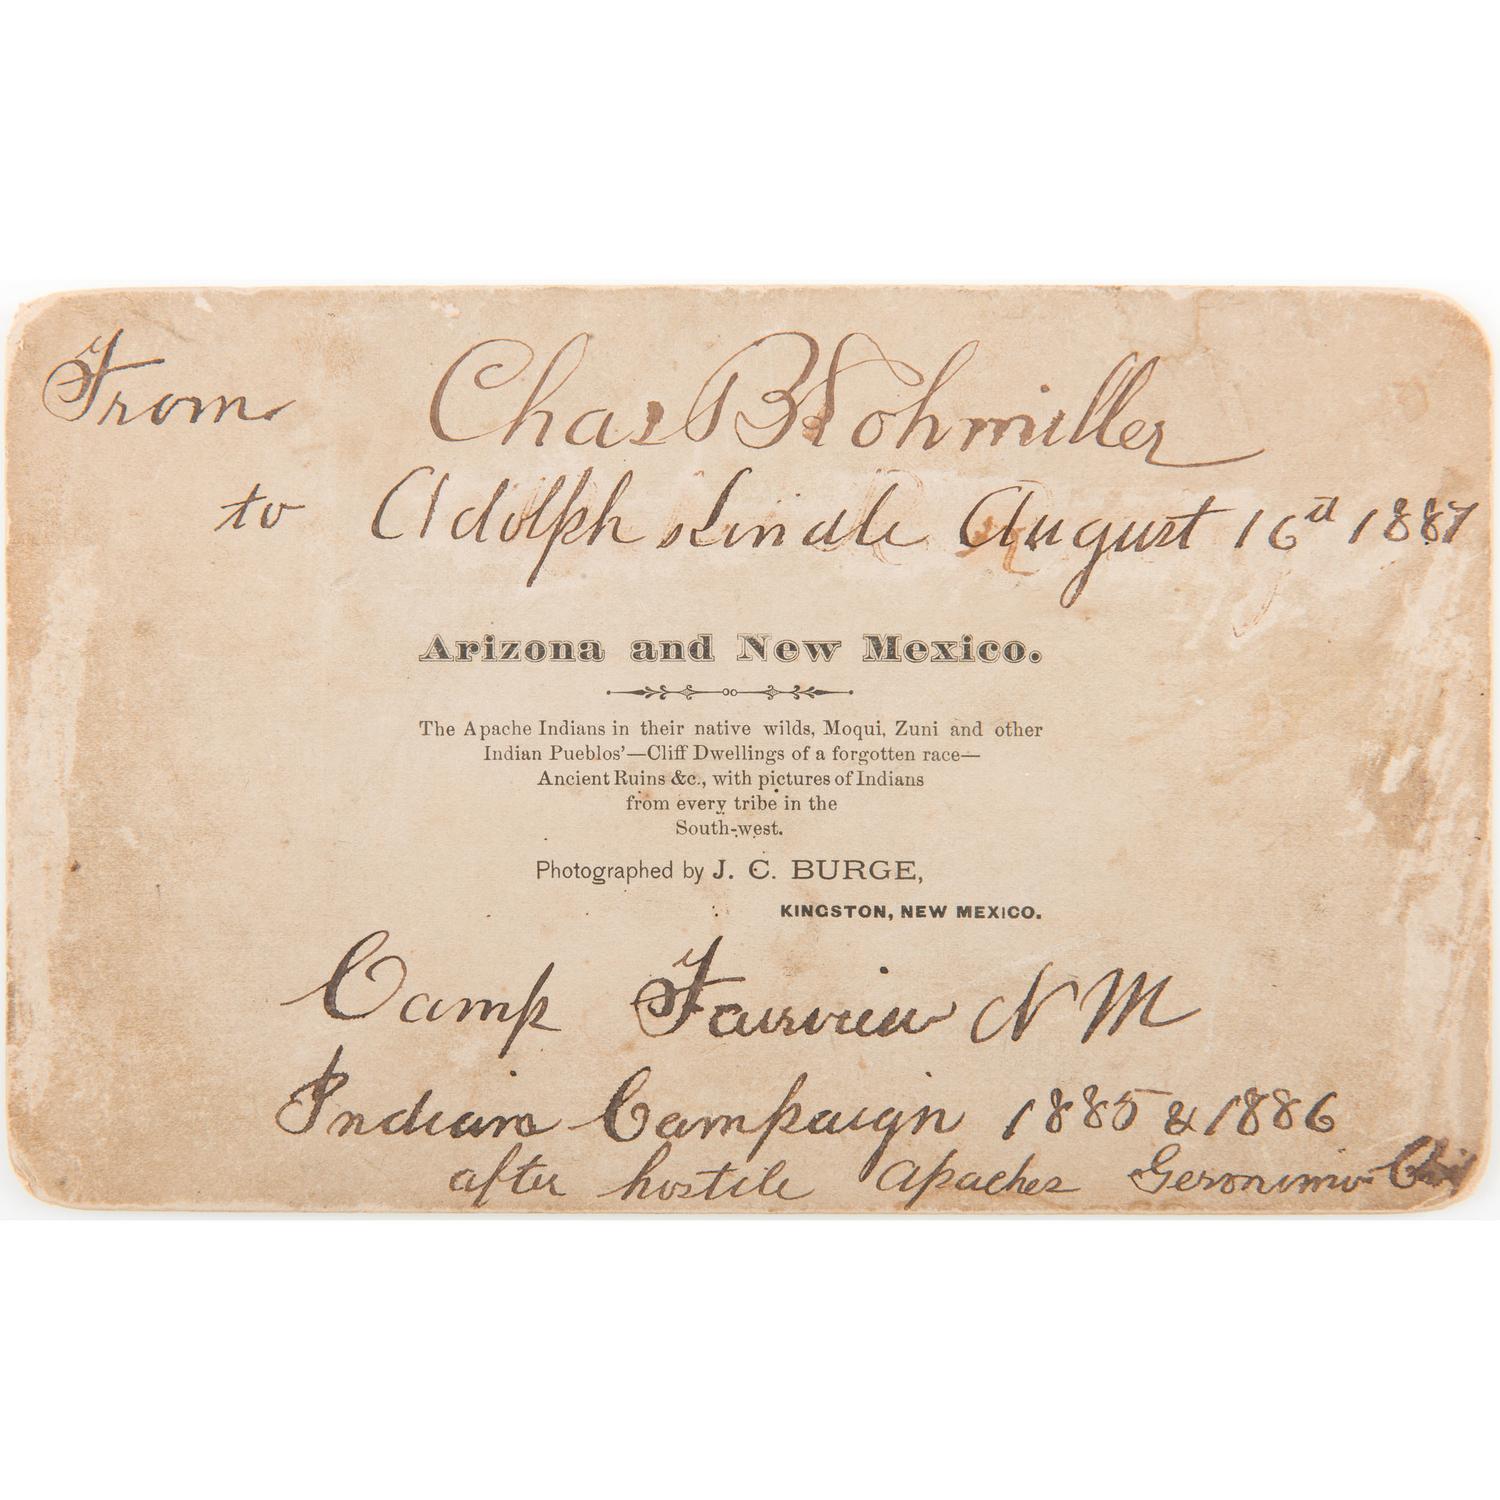 From Chas B Rohmiller
to Adolph Lindle August 16th 1887
Arizona and New Mexico.
The Apache Indians in their native wilds, Moqui, Zuni and other
Indian Pueblos'—Cliff Dwellings of a forgotten race—
Ancient Ruins &c., with pictures of Indians
from every tribe in the
South-west.
Photographed by J. C. BURGE,
KINGSTON, NEW MEXICO.
Camp Fairview N M
Indian Campaign 1885 & 1886
after hostile Apaches Geronimo